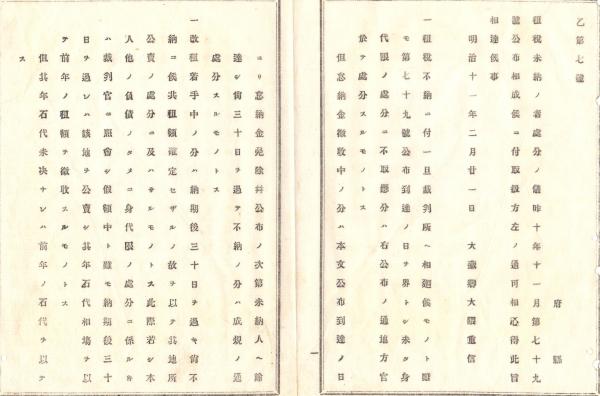 乙第七號
府縣
租税未納ノ者處分ノ儀昨十年十一月第七十九
號公布相成候ニ付取扱方左ノ通可相心得此旨
相達候事
明治十一年二月廿一日　大藏卿大隈重信
一租税不納ニ付一旦裁判所ヘ相廻候モノト雖
モ第七十九號公布到達ノ日ヲ界トシ未タ身
代限ノ處分ニ不取懸分ハ右公布ノ通地方官
於テ處分スルモノトス
但怠納金徴收中ノ分ハ本文公布到達ノ日
一
ヨリ怠納金免除並公布ノ次第未納人ヘ諭
達シ尚三十日ヲ過テ不納ノ分ハ成規ノ通
處分スルモノトス
一改租着手中ノ分ハ納期後三十日ヲ過キ尚不
納ニ候共其租額確定セザルノ故ヲ以テ其地所
公賣ノ處分ニ及ハサルモノトス此際若シ本
人他ノ負債ノタメニ身代限ノ處分ニ係ルトキ
ハ裁判官ニ照會シ假額中ト雖モ納期後三十
日ヲ過レハ該地ヲ公賣シ其年石代相塲ヲ以
テ前年ノ租額ヲ徴收スルモノトス
但其年石代未决ナレハ前年ノ石代ヲ以テ
ス